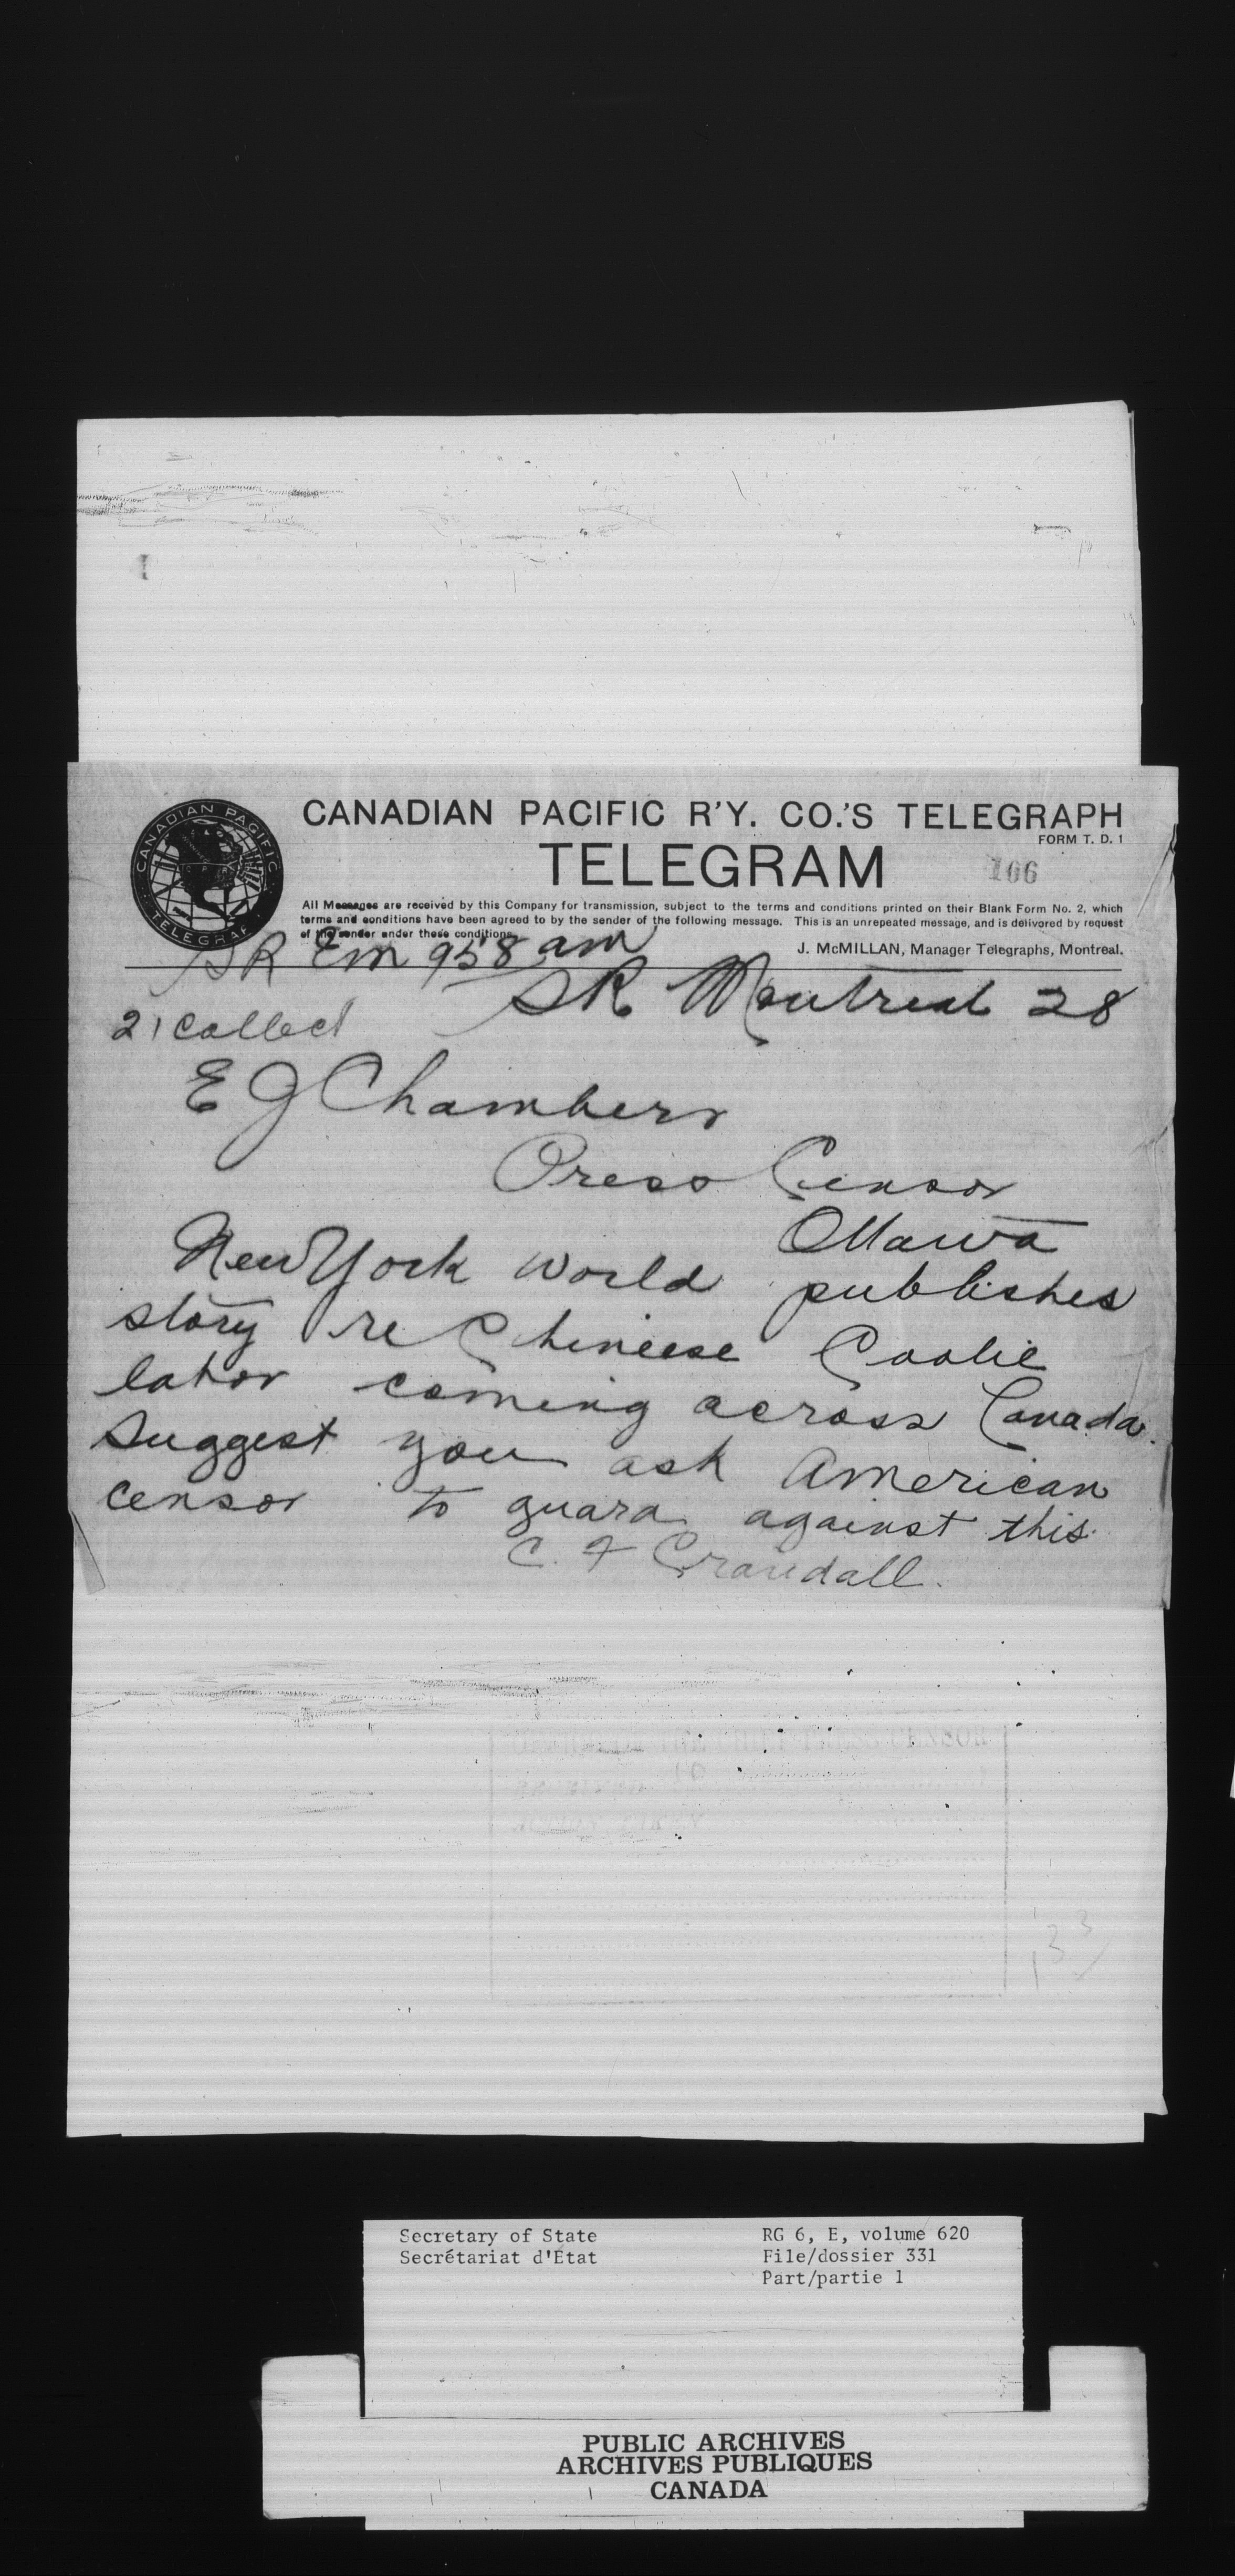 CANADIAN PACIFIC R'Y. CO.'S TELEGRAPH
FORM T. D. 1
TELEGRAM
106
CANADIAN PACIFIC
TELEGRAPH
All Messages are received by this Company for transmission, subject to the terms and conditions printed on their Blank Form No. 2, which
terms and conditions have been agreed to by the sender of the following message. This is an unrepeated message, and is delivored by request
of the sender under these conditions.
J. McMILLAN, Manager Telegraphs, Montreal.
SR Em 958 am
SR Montreal 28
21 collect
E J Chambers
Press Censor
Ottawa
New York World publishes
story re Chineese Coolie
labor coming across Canada.
Suggest you ask American
censor to guard against this.
C. F Crandall.
OFFICE OF THE CHIEF PRESS CENSOR
RECEIVED 10
ACTION TAKEN
133
Secretary of State
Secrétariat d'État
RG 6, E, volume 620
File/dossier 331
Part/partie 1
PUBLIC ARCHIVES
ARCHIVES PUBLIQUES
CANADA